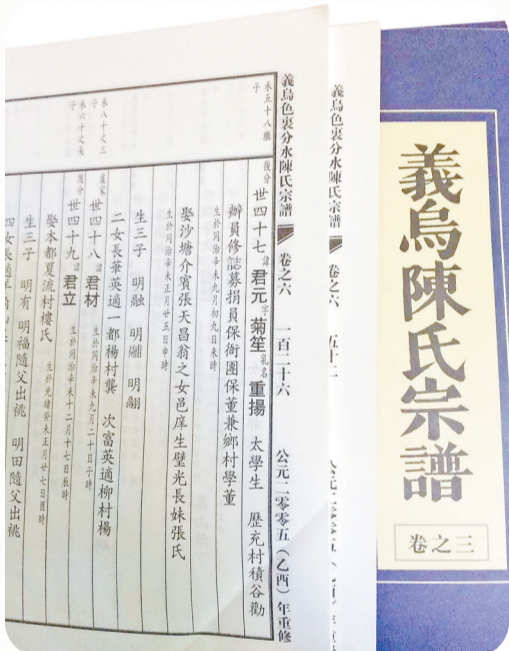 義烏陳氏宗譜
卷之三
義烏色裏分水陳氏宗譜 卷之六 五十二
義烏色裏分水陳氏宗譜 卷之六 一百二十六 公元二零零五（乙酉）年重修
永五十八繼子
後分 世四十七 諱君元 字菊笙 乳名重揚 太學生 歷充村積谷勸
辦員修誌募捐員保衛團保董兼鄉村學董
生於同治辛未九月初九日未時
娶沙塘介賓張天昌翁之女邑庠生璧光長妹張氏
生於同治辛未正月廿五日申時
生三子 明融 明翽 明翾
二女長華英適一都楊村龔 次富英適柳村楊
永八十之三子
盧家 世四十八 諱君材 生於同治辛未九月二十日子時
永六十之長子
後分 世四十九 諱君立 生於同治辛未十二月十七日
娶本都夏流村樓氏 生於光緒癸未正月廿七日酉時
生三子 明有 明福隨父出祧 明田隨父出祧
四女長適